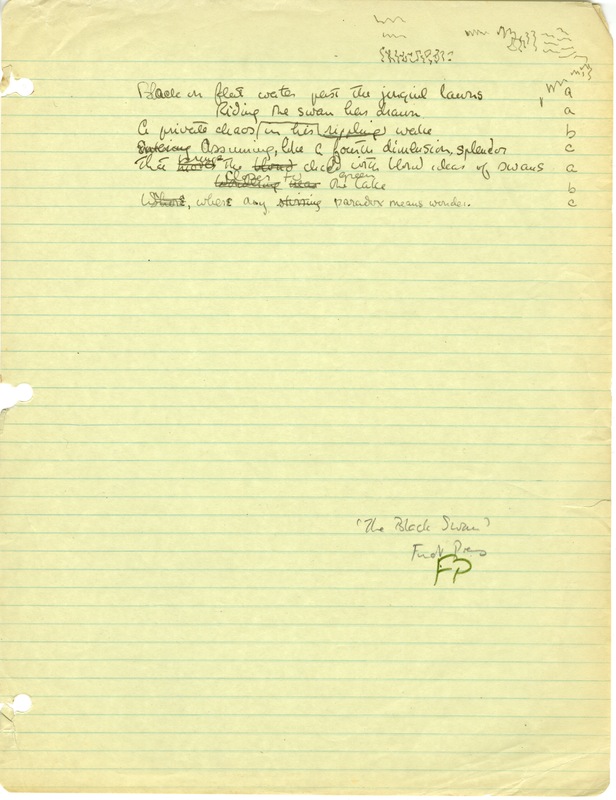 Black on flat water past the jonquil lawns a
Riding the swan has drawn a
A private chaos in his rippling wake b
Assuming, like a fourth dimension, splendor c
That the child with blond ideas of swans a
to the green lake b
Where, where any stirring paradox means wonder. c
'The Black Swan'
FP